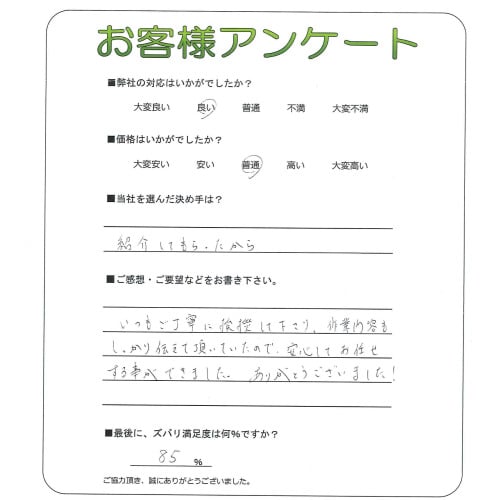 お客様アンケート
■弊社の対応はいかがでしたか？
大変良い 良い 普通 不満 大変不満
■価格はいかがでしたか？
大変安い 安い 普通 高い 大変高い
■当社を選んだ決め手は？
紹介してもらったから
■ご感想・ご要望などをお書き下さい。
いつもご丁寧に挨拶して下さり、作業内容も
しっかり伝えて頂いていたので、安心してお任せ
する事ができました。ありがとうございました！
■最後に、ズバリ満足度は何％ですか？
85 %
ご協力頂き、誠にありがとうございました。